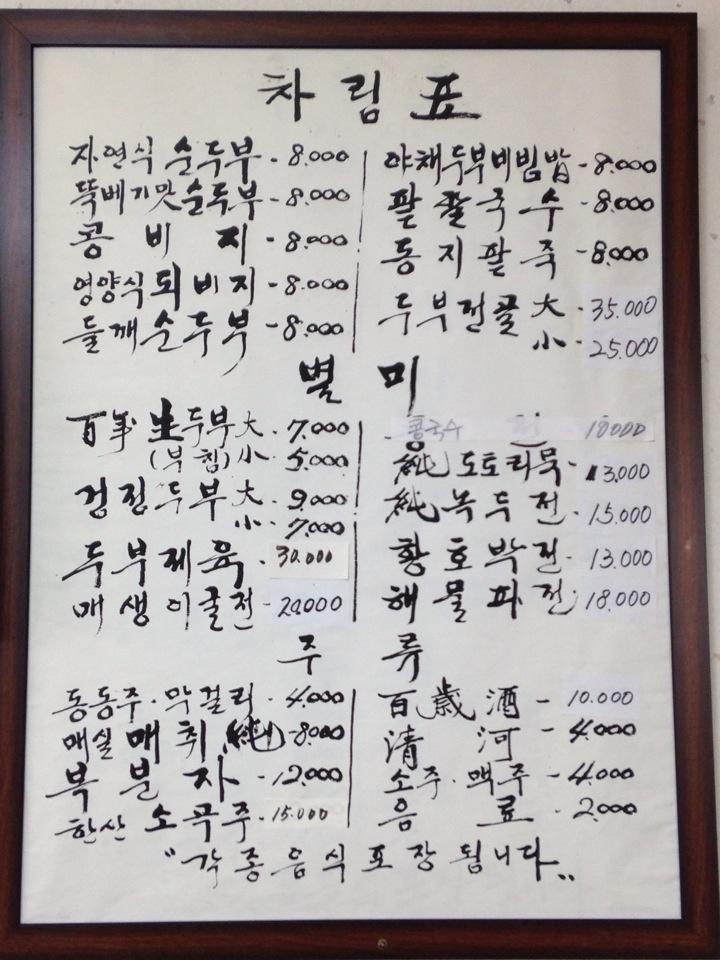 차림표
자연식 순두부 - 8.000
뚝배기맛 순두부 - 8.000
콩비지 - 8.000
영양식 되비지 - 8.000
들깨순두부 - 8.000
야채두부비빔밥 - 8.000
팥칼국수 - 8.000
동지팥죽 - 8.000
두부전골 大 - 35.000
小 - 25.000
별미
百年 生두부 大 - 7.000
(부침) 小 5.000
검정두부 大 - 9.000
小 - 7.000
두부제육 - 30.000
매생이굴전 - 20.000
콩국수 18000
純 도토리묵 - 13.000
純 녹두전 - 15.000
황호박전 - 13.000
해물파전 - 18.000
주류
동동주·막걸리 - 4.000
매실 매취 純 - 8.000
복분자 - 12.000
한산 소곡주 - 15.000
百歲酒 - 10.000
清河 - 4.000
소주·맥주 - 4.000
음료 - 2.000
"각종음식포장됩니다"